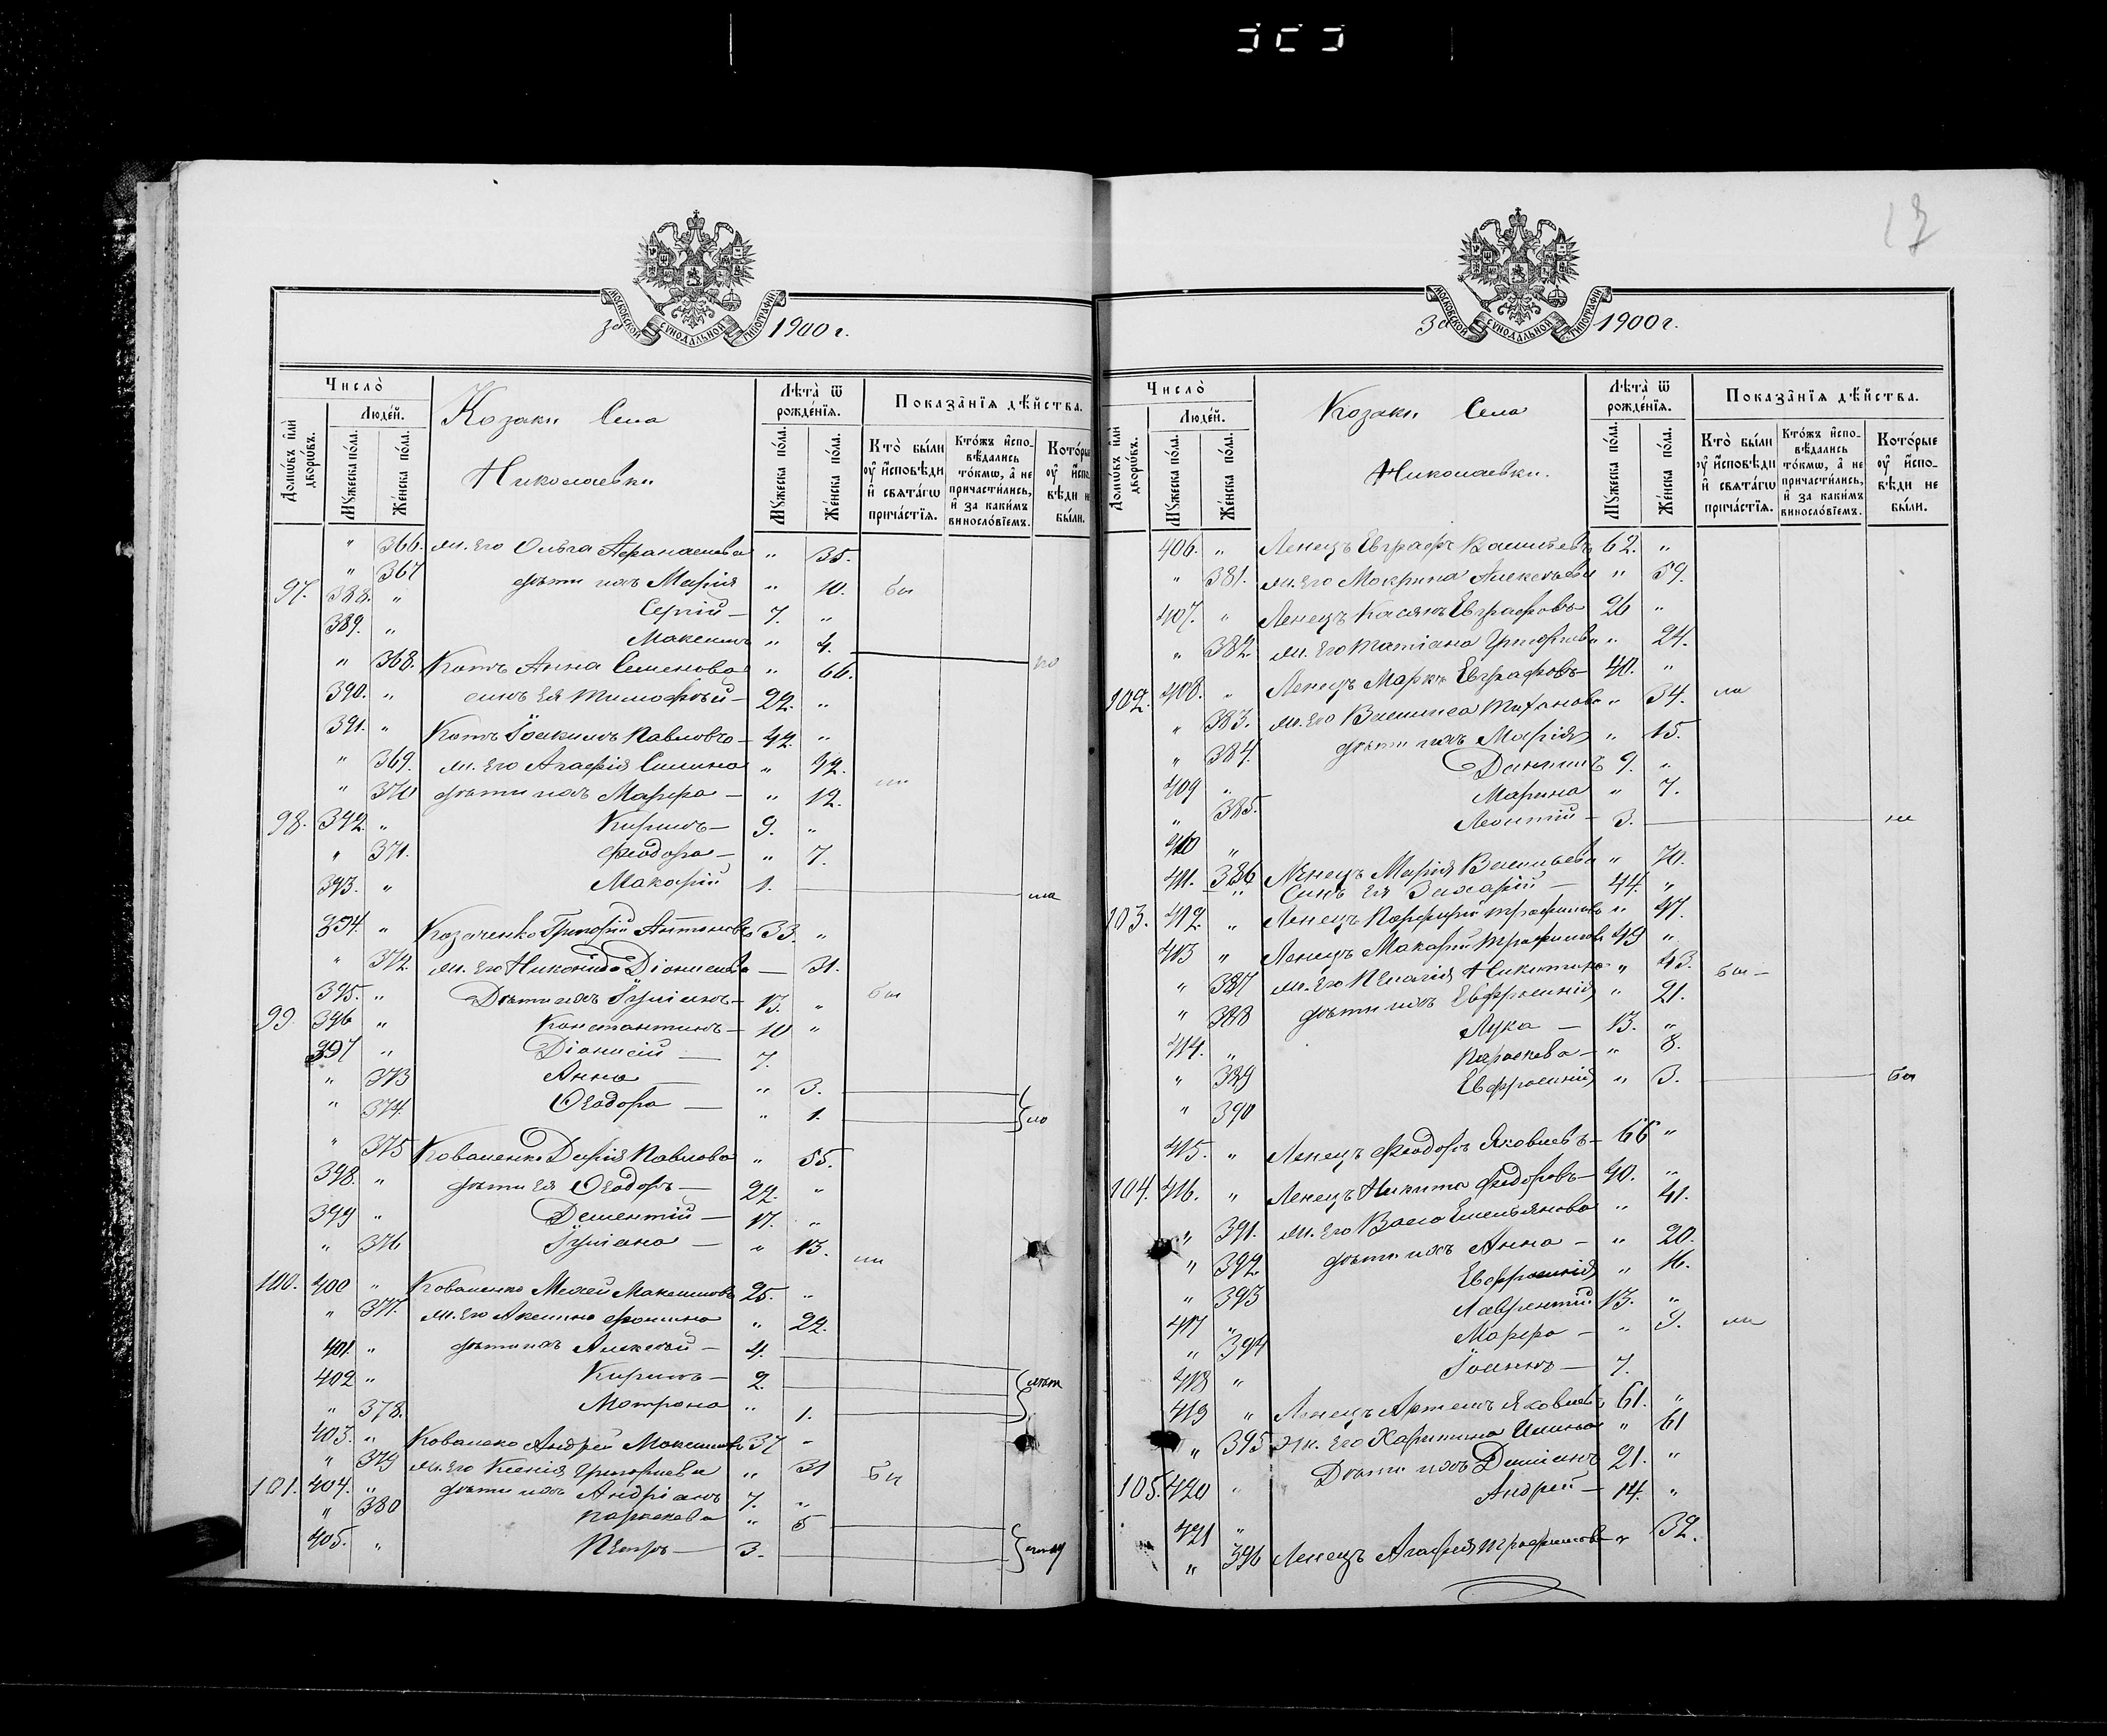 за 1900 г.
МОСКОВСКОЙ СѴНОДАЛЬНОЙ ТИПОГРАФІИ
Число̀
Домѡвъ и҆лѝ дворѡвъ.
Люде́й.
Мꙋ́жеска по́ла.
Же́нска по́ла.
Козаки Села
Николаевки
Лѣта̀ ѿ рожде́нїѧ.
Мꙋ́жеска по́ла.
Же́нска по́ла.
Показа̑нїѧ дѣ́йства.
Кто̀ бы́ли ᲂу҆ и҆сповѣ́ди и҆ свѧта́гѡ прича́стїѧ.
Кто́жъ и҆сповѣ́дались то́кмѡ, а҆ не причасти́лись, и҆ за каки́мъ винословїемъ.
Кото́рые ᲂу҆ и҆спо-вѣди не были.
" 366. ж. его Ольга Афанасиева " 35.
" 367 дѣти ихъ Марія " 10.
97. 388. " Сергій — 7. "
389. " Максимъ " 4.
" 368. Котъ Анна Семенова " 66.
390. " сынъ ея Тимофѣй — 22. "
391. " Котъ Іоакимъ Павловъ — 42. "
" 369. ж. его Агафія Силина " 42.
" 370 дѣти ихъ Марфа — " 12.
98. 392. " Кирилъ — 9. "
" 371. Феодора — " 7.
393. " Макарій 1.
394. " Козаченко Григорій Антоновъ 33. "
" 372. ж. его Никонида Діонисиева — 31.
395. " Дѣти ихъ Іуліанъ — 13. "
99. 396 " Константинъ — 10 "
397 " Діонисій — 7.
" 373 Анна — " 3.
" 374. Ѳеодора — " 1.
" 375 Коваленко Дарія Павлова " 55.
398. " дѣти ея Ѳеодоръ — 22. "
399 " Дементій — 17. "
" 376 Іуліана — " 13.
100. 400 " Коваленко Моисей Максимовъ 25. "
" 377. ж. его Акилина Фомина " 22.
401. " дѣти ихъ Алексѣй — 4.
402 " Кирилъ — 2.
" 378. Матрона " 1.
403. " Коваленко Андрей Максимовъ 37 "
" 379 ж. его Ксенія Григориева " 31
101. 404. " дѣти ихъ Андріанъ 7. "
" 380 Параскева " 5
405. " Петръ — 3.
13
за 1900 г.
МОСКОВСКОЙ СѴНОДАЛЬНОЙ ТИПОГРАФІИ
Число̀
Домѡвъ и҆лѝ дворѡвъ.
Люде́й.
Мꙋ́жеска по́ла.
Же́нска по́ла.
Козаки Села
Николаевки.
Лѣта̀ ѿ рожде́нїѧ.
Мꙋ́жеска по́ла.
Же́нска по́ла.
Показа̑нїѧ дѣ́йства.
Кто̀ бы́ли ᲂу҆ и҆сповѣ́ди и҆ свѧта́гѡ прича́стїѧ.
Кто́жъ и҆сповѣ́дались то́кмѡ, а҆ не причасти́лись, и҆ за каки́мъ винословїемъ.
Кото́рые ᲂу҆ и҆спо-вѣди не были.
406. " Ленецъ Евграфъ Васильевъ 62. "
" 381. ж. его Мокрина Алексѣева " 59.
407. " Ленецъ Касянъ Евграфовъ 26 "
" 382 ж. его Татіана Григориева " 24.
102. 408. " Ленецъ Маркъ Евграфовъ 40. "
" 383. ж. его Василиса Тихонова " 34.
" 384. дѣти ихъ Марія " 15.
409 " Даниилъ 9. "
" 385. Марина " 7.
410 " Леонтій — 3.
411. 386 Ленецъ Марія Васильева " 70.
" Сынъ ея Захарій — 44. "
103. 412. " Ленецъ Порфирій Трофимовъ " 47.
413 " Ленецъ Макарій Трофимовъ 49 "
" 387 ж. его Пелагія Никитина " 43.
" 388 дѣти ихъ Евфросинія " 21.
414. " Лука — 13. "
" 389 Параскева — " 8.
" 390 Евфросинія " 3.
415. " Ленецъ Феодоръ Яковлевъ — 66 "
104. 416. " Ленецъ Никита Федоровъ — 40. "
" 391. ж. его Васса Емельянова " 41.
" 392 дѣти ихъ Анна — " 20.
" 393 Евфросинія " 16.
417 " Лаврентій 13. "
" 394 Марфа — " 9.
418 " Іоаннъ — 7.
419 " Ленецъ Артемъ Яковлевъ 61. "
" 395 ж. его Харитина Ильина " 61
105. 420 " Дѣти ихъ Даміанъ 21. "
421 " Андрей — 14. "
" 396 Ленецъ Агафія Трофимова " 32.